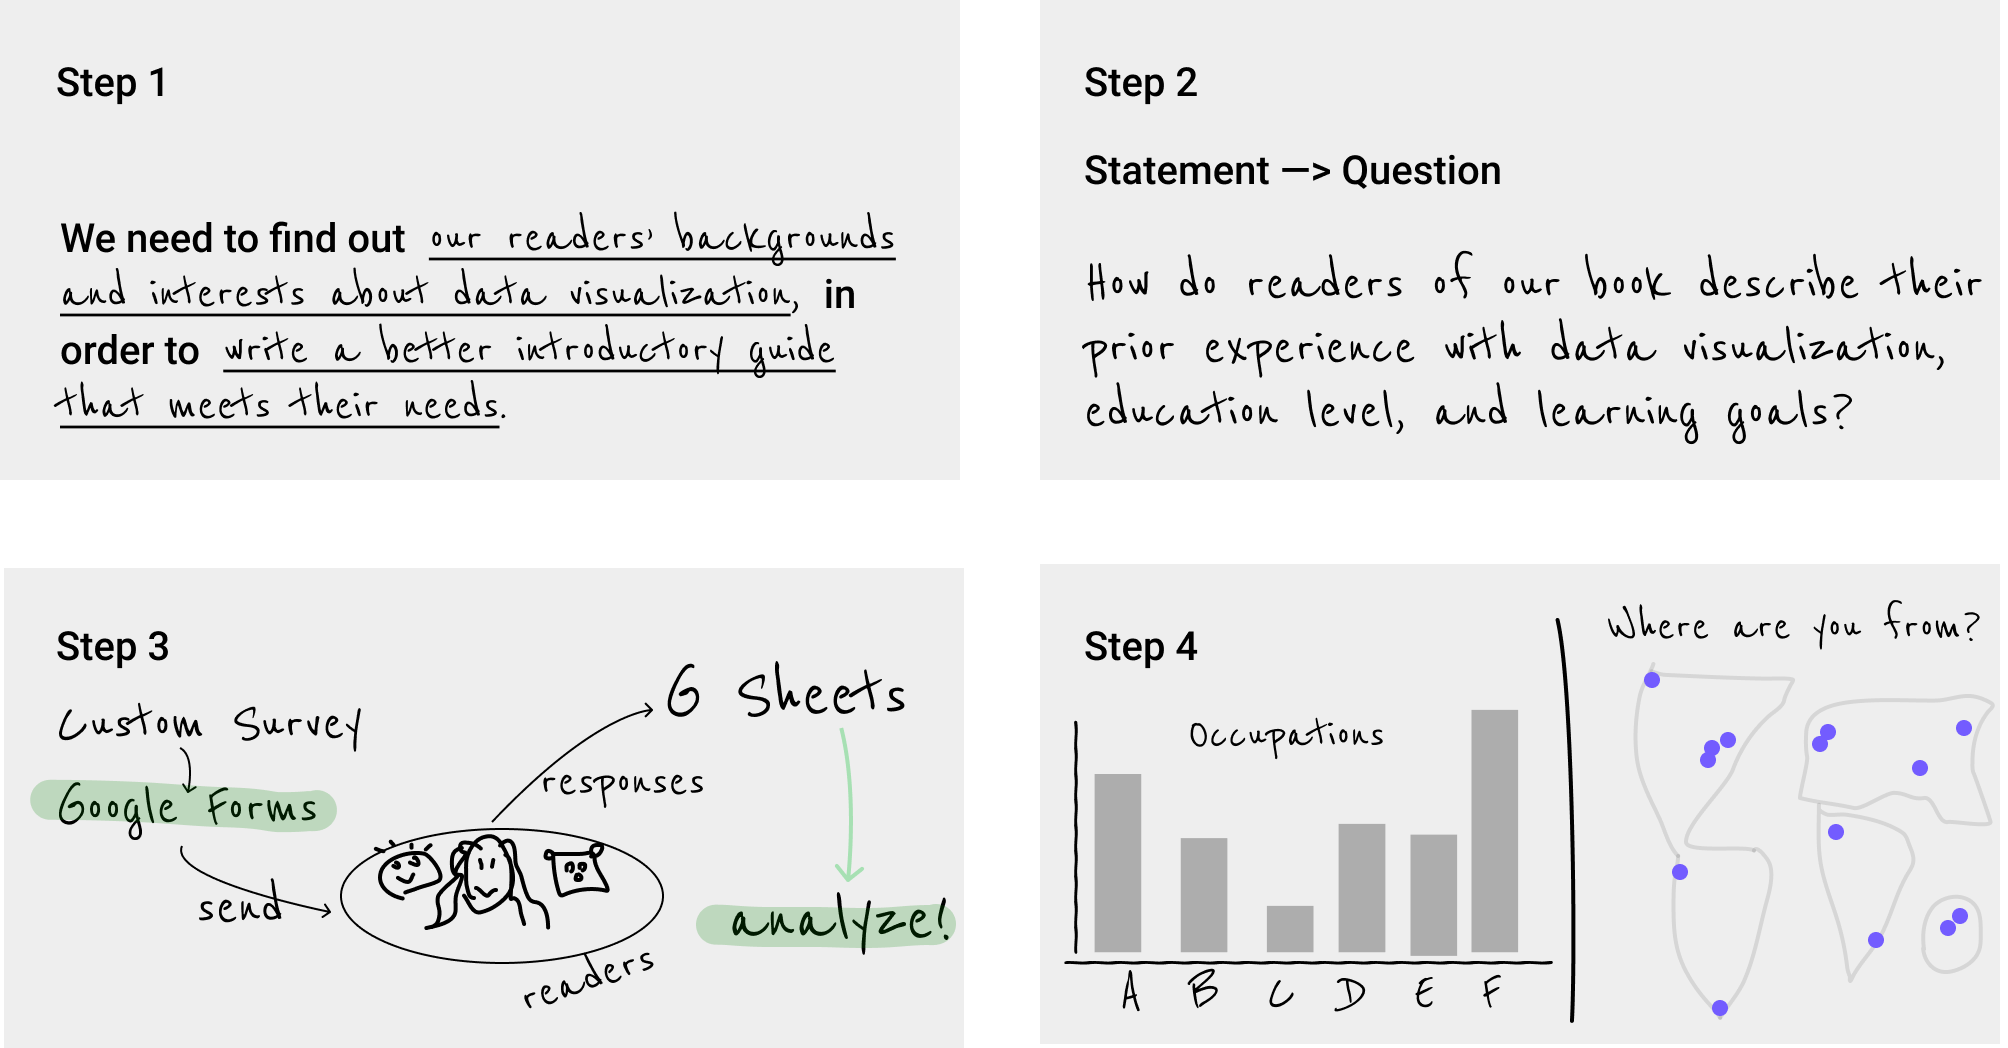 Step 1
We need to find out our readers' backgrounds
and interests about data visualization, in
order to write a better introductory guide
that meets their needs.
Step 2
Statement —> Question
How do readers of our book describe their
prior experience with data visualization,
education level, and learning goals?
Step 3
Custom Survey
Google Forms
send
readers
responses
G Sheets
analyze!
Step 4
Occupations
A B C D E F
Where are you from?